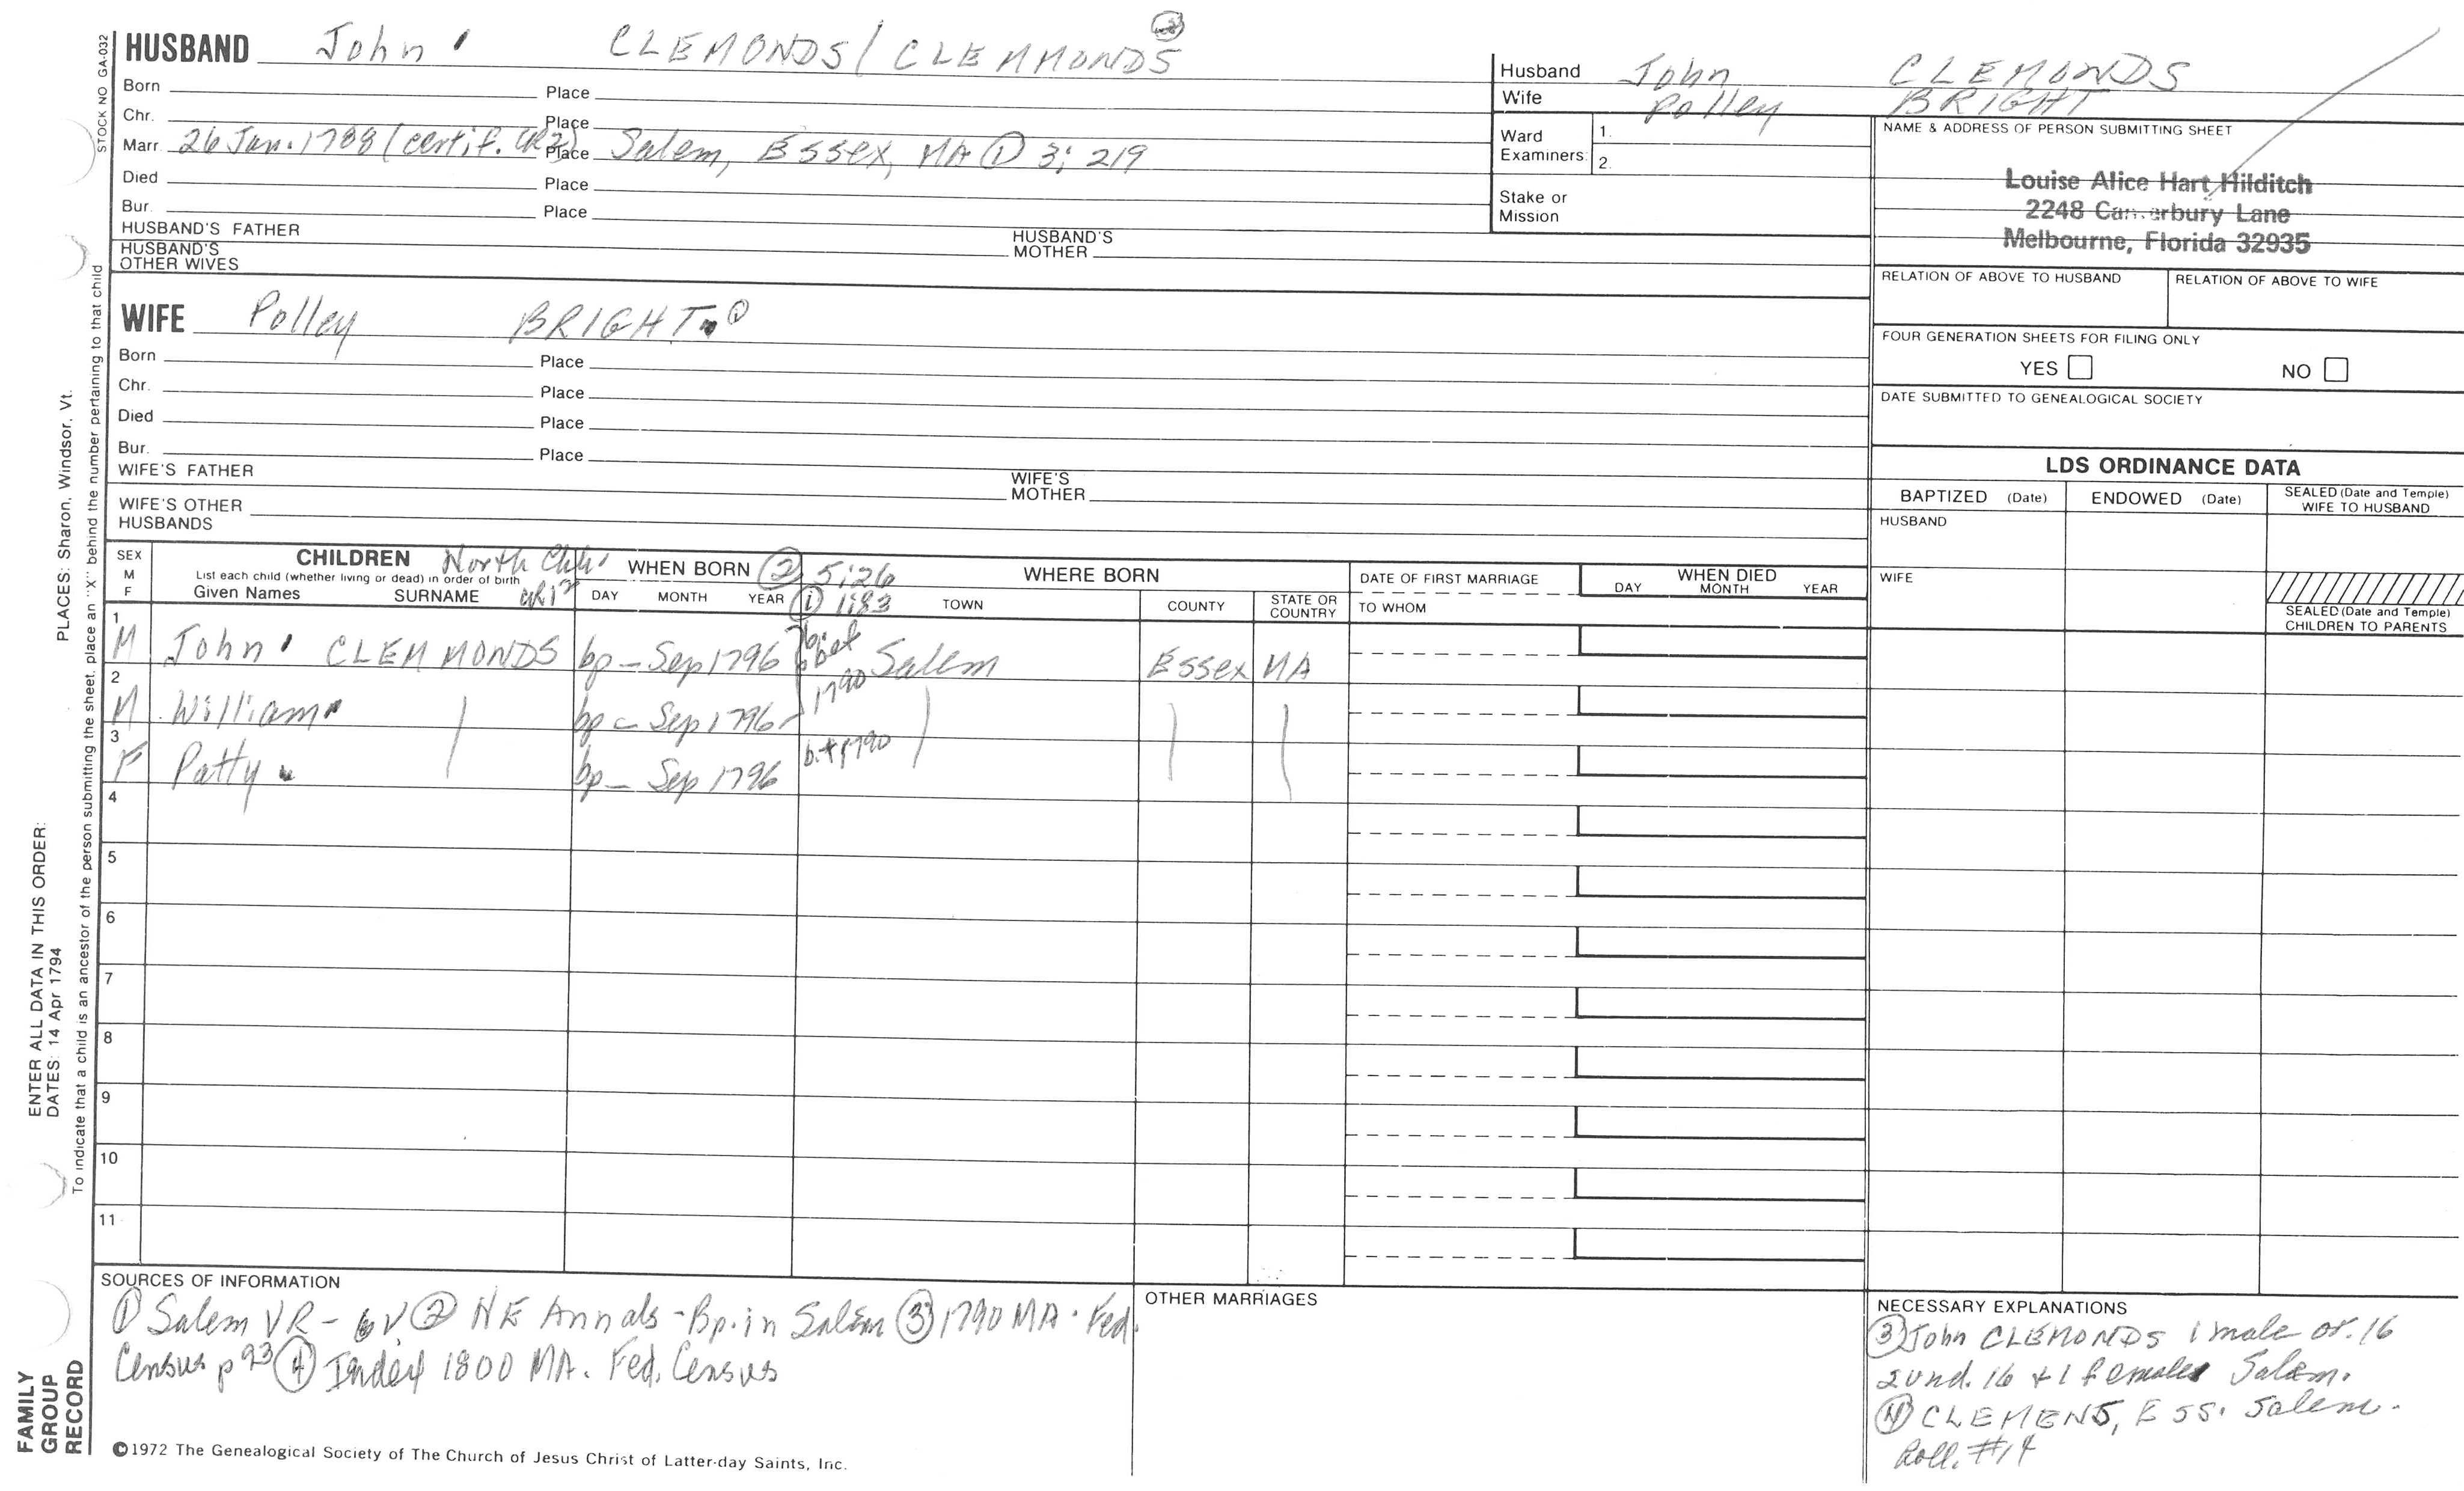 HUSBAND John CLEMONDS/CLEMMONDS ③
Born Place
Chr. Place
Marr. 26 Jan. 1788 (certif. CR2) Place Salem, Essex, MA ① 3: 219
Died Place
Bur. Place
HUSBAND'S FATHER HUSBAND'S MOTHER
HUSBAND'S OTHER WIVES
Husband John CLEMONDS
Wife Polley BRIGHT
Ward Examiners: 1.
2.
Stake or Mission
NAME & ADDRESS OF PERSON SUBMITTING SHEET
Louise Alice Hart Hilditch
2248 Canterbury Lane
Melbourne, Florida 32935
RELATION OF ABOVE TO HUSBAND RELATION OF ABOVE TO WIFE
FOUR GENERATION SHEETS FOR FILING ONLY
YES NO
DATE SUBMITTED TO GENEALOGICAL SOCIETY
WIFE Polley BRIGHT ①
Born Place
Chr. Place
Died Place
Bur. Place
WIFE'S FATHER WIFE'S MOTHER
WIFE'S OTHER HUSBANDS
LDS ORDINANCE DATA
BAPTIZED (Date) ENDOWED (Date) SEALED (Date and Temple) WIFE TO HUSBAND
HUSBAND
WIFE
SEALED (Date and Temple) CHILDREN TO PARENTS
SEX M F
CHILDREN North Chh.
List each child (whether living or dead) in order of birth
Given Names SURNAME
WHEN BORN ② 5:26
DAY MONTH YEAR ① 1:183
WHERE BORN
TOWN COUNTY STATE OR COUNTRY
DATE OF FIRST MARRIAGE
TO WHOM
WHEN DIED
DAY MONTH YEAR
1 M John CLEMMONDS bp — Sep 1796 bef 1790 Salem Essex MA
2 M William bp — Sep 1796
3 F Patty bp — Sep 1796 1790
4
5
6
7
8
9
10
11
SOURCES OF INFORMATION
① Salem VR - 6V ② NE Annals - Bp. in Salem ③ 1790 MA. Fed.
Census p 93 ④ Index 1800 MA. Fed. Census
OTHER MARRIAGES
NECESSARY EXPLANATIONS
③ John CLEMONDS 1 male ov. 16
2 und. 16 + 1 female Salem.
④ CLEMENS, ESS. Salem.
Roll. #14
©1972 The Genealogical Society of The Church of Jesus Christ of Latter-day Saints, Inc.
STOCK NO GA-032
To indicate that a child is an ancestor of the person submitting the sheet, place an "X" behind the number pertaining to that child
PLACES: Sharon, Windsor, Vt.
ENTER ALL DATA IN THIS ORDER:
DATES: 14 Apr 1794
FAMILY
GROUP
RECORD